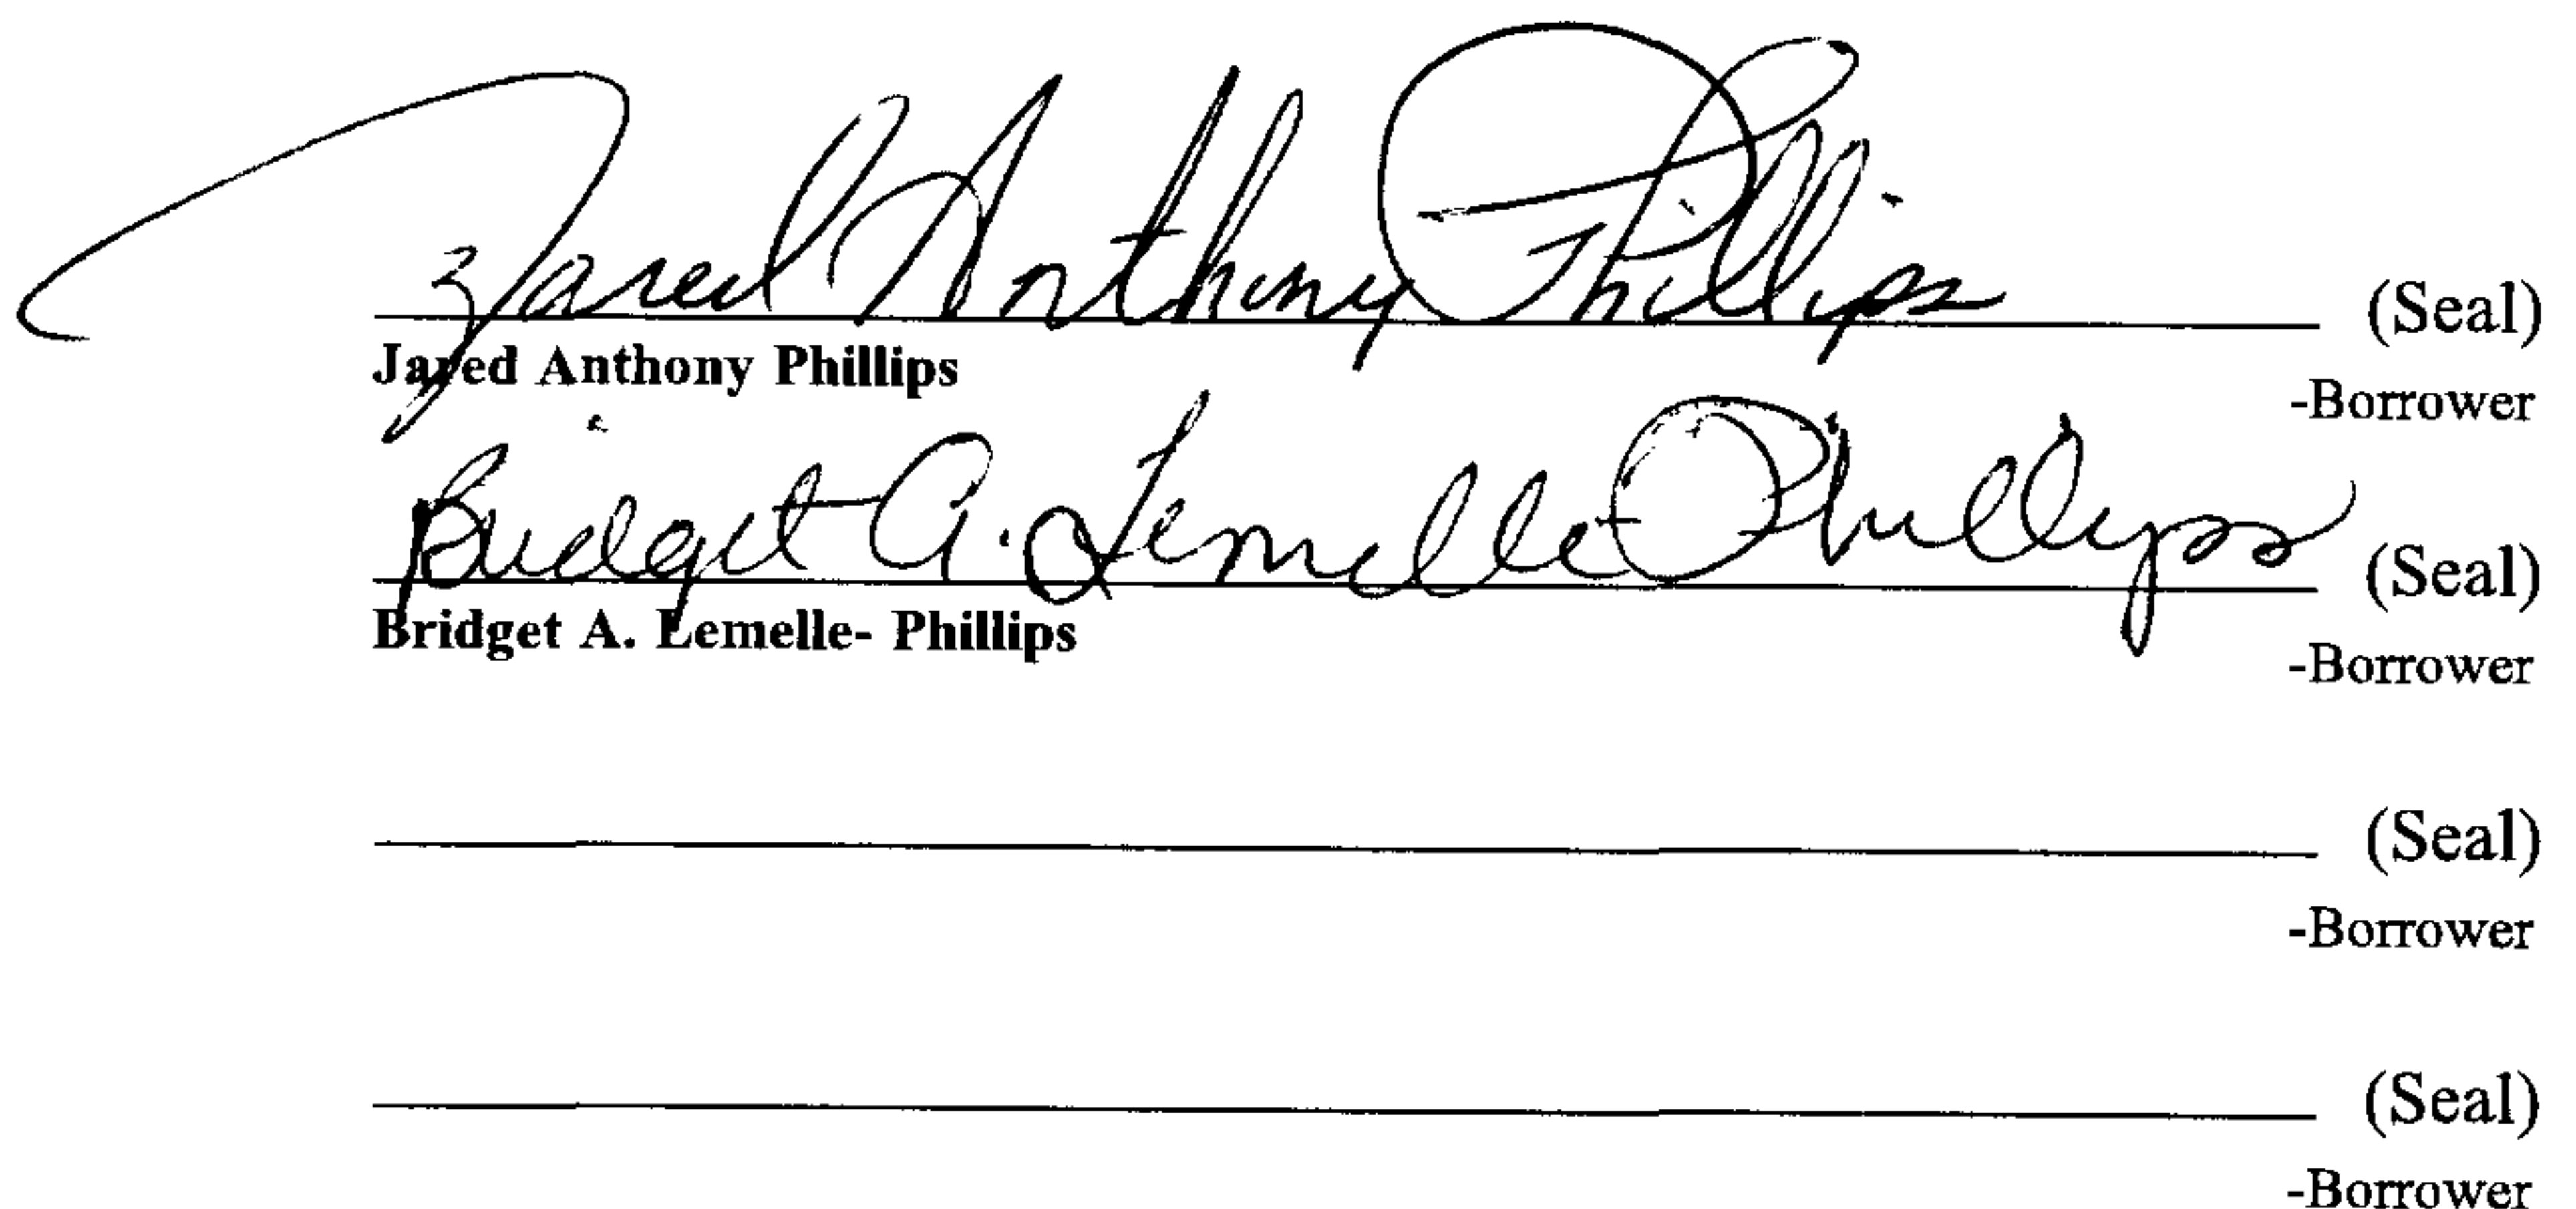 Jared Anthony Phillips (Seal)
Jared Anthony Phillips
-Borrower
Bridget A. Lemelle-Phillips (Seal)
Bridget A. Lemelle- Phillips
-Borrower
(Seal)
-Borrower
(Seal)
-Borrower